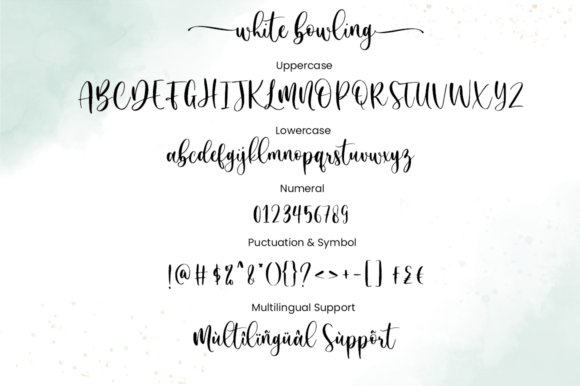 white bowling
Uppercase
ABCDEFGHIJKLMNOPQRSTUVWXYZ
Lowercase
abcdefgijklmnopqrstuvwxyz
Numeral
0123456789
Puctuation & Symbol
!@#$%^&*(){}?<>+-[] ƒ£€
Multilingual Support
Mùltîlïñgüâl Sùppõrt